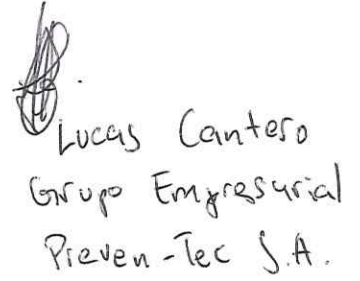 Lucas Cantero
Grupo Empresarial
Preven-Tec S.A.